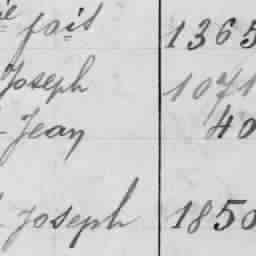 fois 1365
Joseph 1071
Jean 40
Joseph 1850